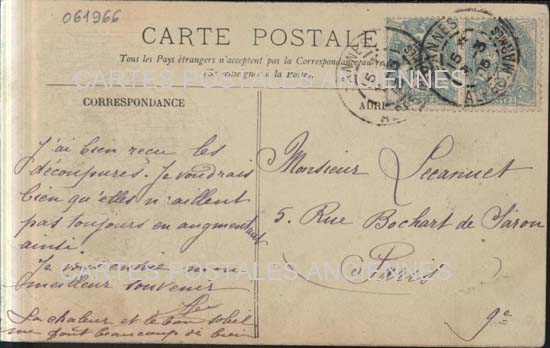 061966
CARTE POSTALE
Tous les Pays étrangers n'acceptent pas la Correspondance au
(Se renseigner à la Poste).
CARTES POSTALES ANCIENNES
CORRESPONDANCE
ADR
J'ai bien recu les
découpures. Je voudrais
bien qu'elles n'aillent
pas toujours en augmentant
ainsi
Je vous envoie mon
meilleur souvenir
La chaleur et le bon soleil
me font beaucoup de bien
Monsieur Lecanuet
5. Rue Bochart de Saron
Paris
9e
CARTES POSTALES ANCIENNES